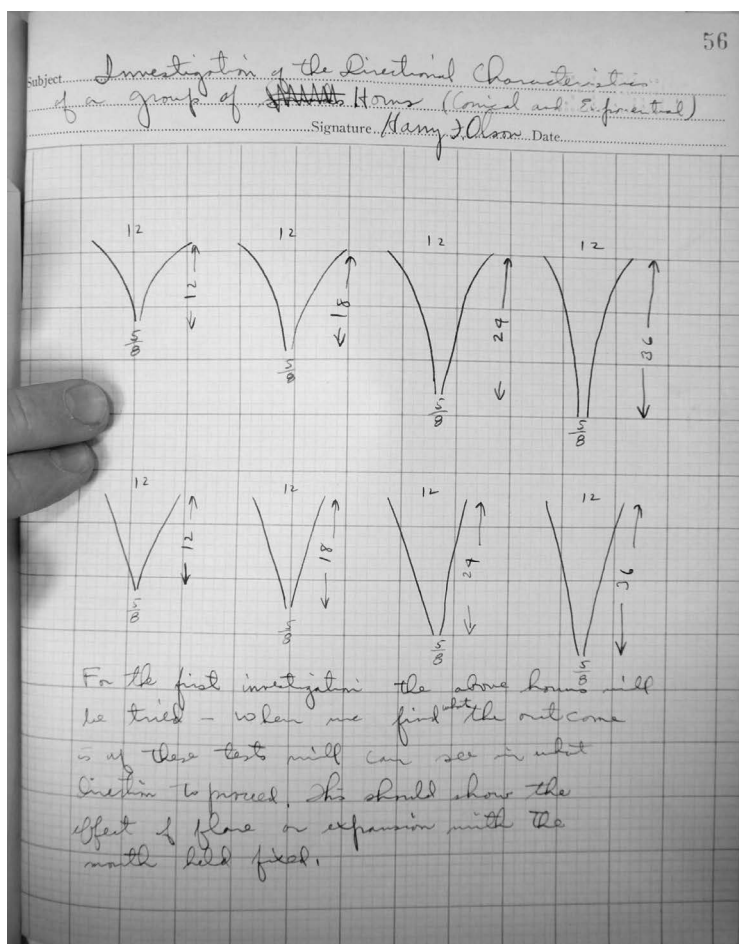 56
Subject Investigation of the Directional Characteristics
of a group of Horns (Conical and Exponential)
Signature Harry F. Olson Date
12 12 12 12
12 18 24 36
5/8 5/8 5/8 5/8
12 12 12 12
12 18 24 36
5/8 5/8 5/8 5/8
For the first investigation the above horns will
be tried – when we find what the outcome
is of these tests will can see in what
direction to proceed. This should show the
effect of flare or expansion with the
mouth held fixed.